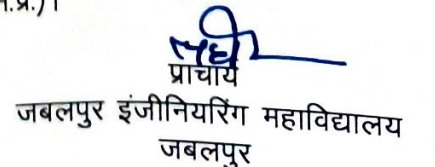 .प्र.)।
प्राचार्य
जबलपुर इंजीनियरिंग महाविद्यालय
जबलपुर